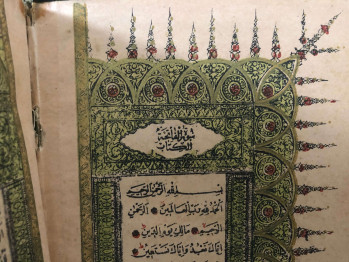 سورة فاتحة
الكتاب
بسم الله الرحمن الرحيم
الحمد لله رب العالمين الرحمن
الرحيم مالك يوم الدين
إياك نعبد وإياك نستعين